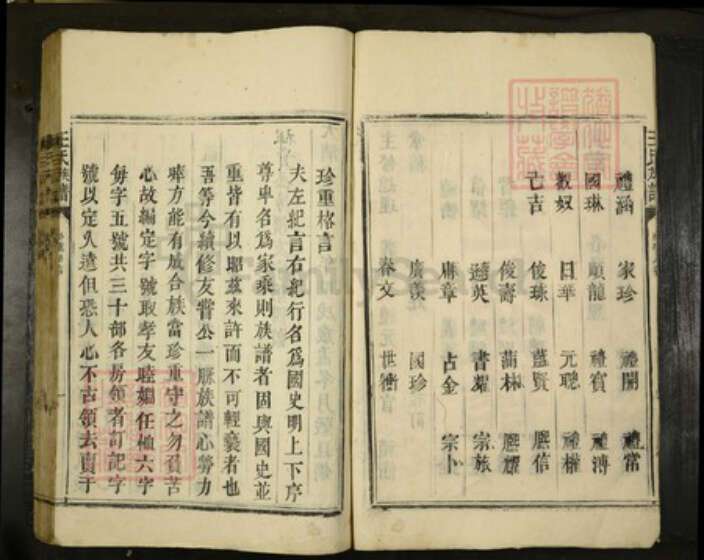 王氏族譜
禮涵 家珍 禮開 禮常
國琳 顯龍 禮賓 禮溥
觀奴 日華 元聰 禮權
七吉 俊珠 藎賢 熙信
俊壽 蒲林 熙耀
達英 書耀 宗旅
麻章 占金 宗卜
廣漢 國珍
春文 世衡
珍重格言
夫左紀言右紀行名爲國史明上下序
尊卑名爲家乘則族譜者固與國史並
重皆有以昭茲來許而不可輕褻者也
吾等今續修友嘗公一脈族譜心勞力
瘁方能有成合族當珍重守之勿負苦
心故編定字號取孝友睦婣任恤六字
每字五號共三十部各房領者訂記字
號以定久遠但恐人心不古領去賣于
王氏族譜